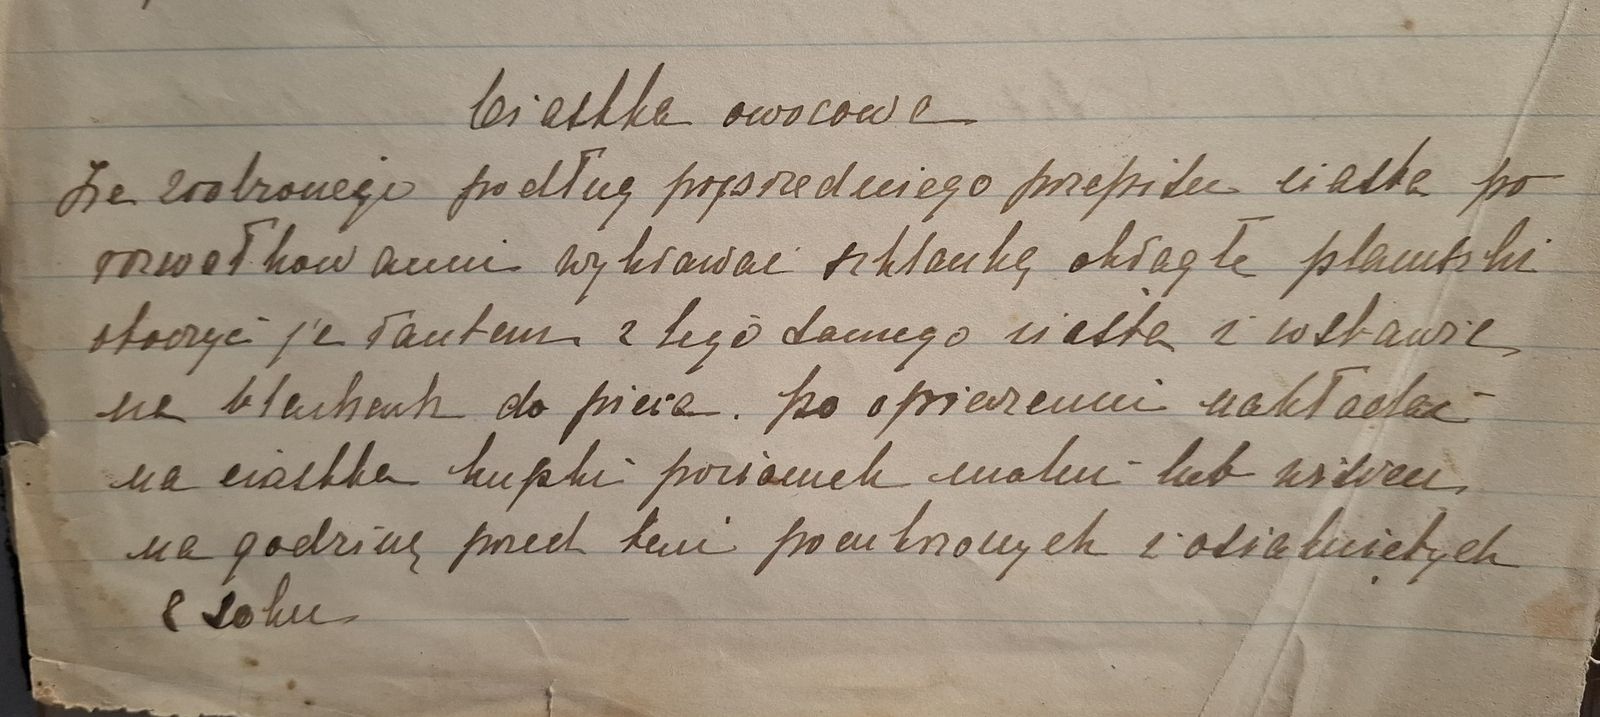 Ciastka owocowe
Ze zrobionego podług poprzedniego przepisu ciasta po
rozwałkowaniu wykrawać szklanką okrągłe placuszki
otoczyć je rantem z tego samego ciasta i wstawić
na blachach do pieca. po opieczeniu nakładać
na ciastka kupki poziomek malin lub wiśien
na godzinę przed tem pocukrzonych i osiąkniętych
z soku